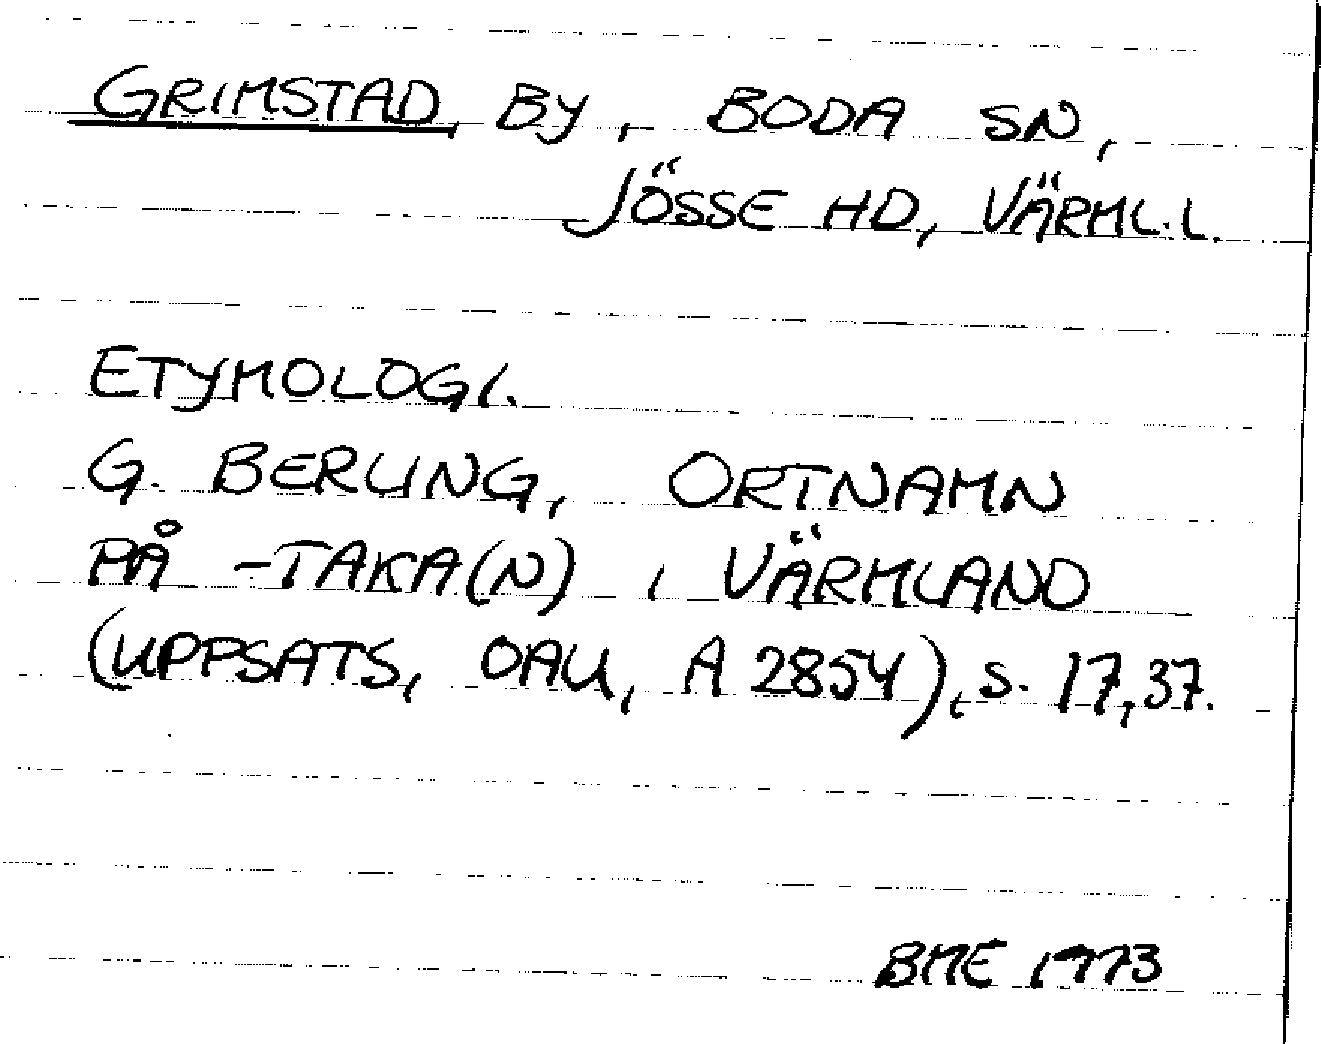 GRIMSTAD BY, BODA SN,
JÖSSE HD, VÄRML.L.
ETYMOLOGI.
G. BERLING, ORTNAMN
PÅ -TAKA(N) I VÄRMLAND
(UPPSATS, OAU, A 2854), S. 17, 37.
BME 1973